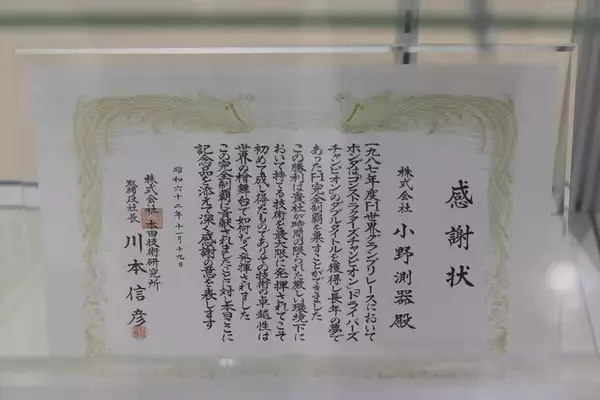 感謝状
株式会社 小野測器殿
一九八七年度F1世界グランプリレースにおいて
ホンダはコンストラクターズチャンピオン、ドライバーズ
チャンピオンのダブルタイトルを獲得し長年の夢で
あったF1完全制覇を果すことができました
この勝利は貴社が時間の限られた厳しい環境下に
おいて持てる技術を最大限に発揮されてこそ
初めて成し得たものでありその技術の卓越性は
世界の檜舞台で如何なく発揮されました
この完全制覇に貢献されましたことに対し本日ここに
記念品を添えて深く感謝の意を表します
昭和六十二年十一月十九日
株式会社 本田技術研究所
取締役社長 川本信彦